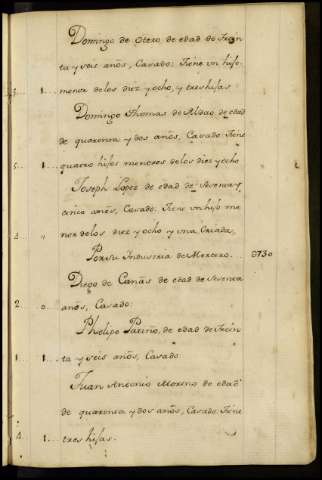 Domingo de Otero de edad de trein
ta y seis años, Casado: tiene un hijo
1... menor de los diez y ocho, y tres hijas
Domingo Thomas de Aldao de edad
de quarenta y dos años, Casado. tiene
1... quatro hijos menores de los diez y ocho
Joseph Lopez de edad de Sesenta y
cinco años, Casado: tiene un hijo me
nor de los diez y ocho y una Criada,
Por su Industria de Mercero.. 0730
Diego de Canas de edad de Sesenta
2. 0... años, Casado:
Phelipe Patiño, de edad de trein
1. 1... ta y seis años, Casado:
Juan Antonio Moreno de edad
de quarenta y dos años, Casado. tiene
4 1... tres hijas.